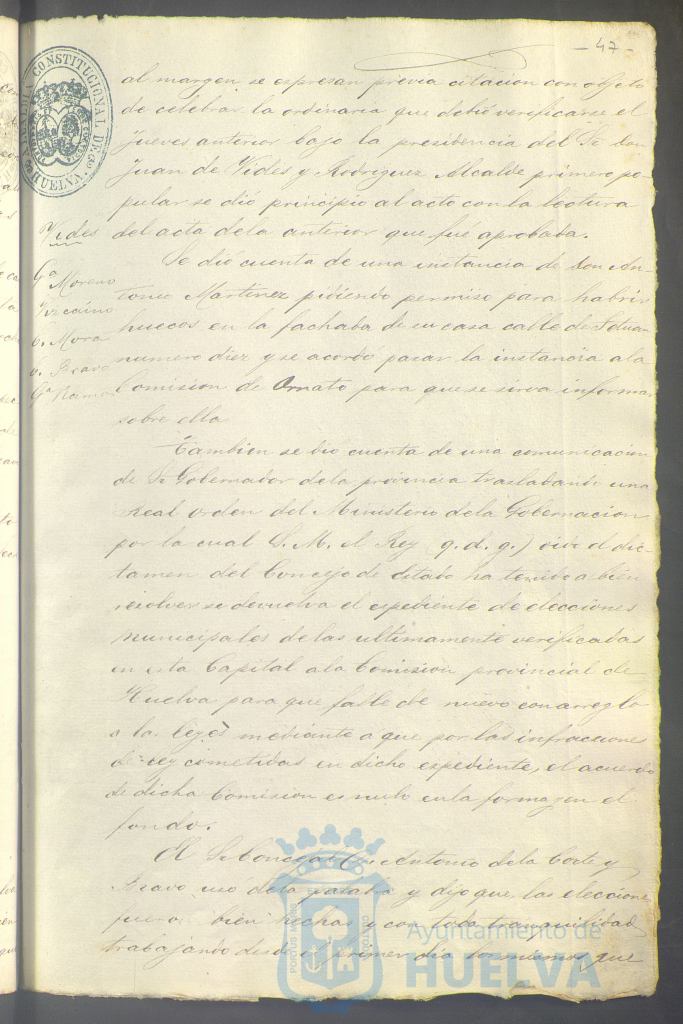 - 47 -
ALCALDIA CONSTITUCIONAL DE HUELVA
al margen se espresan previa citacion con objeto
de celebrar la ordinaria que debió verificarse el
jueves anterior bajo la presidencia del Sr. don
Juan de Vides y Rodriguez Alcalde primero po-
pular se dió principio al acto con la lectura
del acta dela anterior que fué aprobada.
Vides
Gª Moreno
Vizcaino
Mora
Bravo
Gª Ramos
Se dió cuenta de una instancia de don An-
tonio Martinez pidiendo permiso para habrir
huecos en la fachada de su casa calle de Tetuan
numero diez y se acordó pasar la instancia ala
Comision de Ornato para que se sirva informar
sobre ella
Tambien se dió cuenta de una comunicacion
de Sr Gobernador dela provincia trasladando una
Real orden del Ministerio dela Gobernacion
por la cual S. M. el Rey (q. d. g.) oido el dic-
tamen del Concejo de Estado ha tenido a bien
resolver se devuelva el espediente de elecciones
municipales de las ultimamente verificadas
en esta Capital ala Comision provincial de
Huelva para que falle de nuevo con arreglo
a la leyes mediante a que por las infracciones
de ley cometidas en dicho espediente, el acuerdo
de dicha Comision es nulo en la forma y en el
fondo.
El Sr Concejal Dn Antonio dela Corte y
Bravo usó dela palabra y dijo que las elecciones
fueron bien hechas y con toda tranquilidad
trabajando desde el primer dia los mismos que
Ayuntamiento de
HUELVA